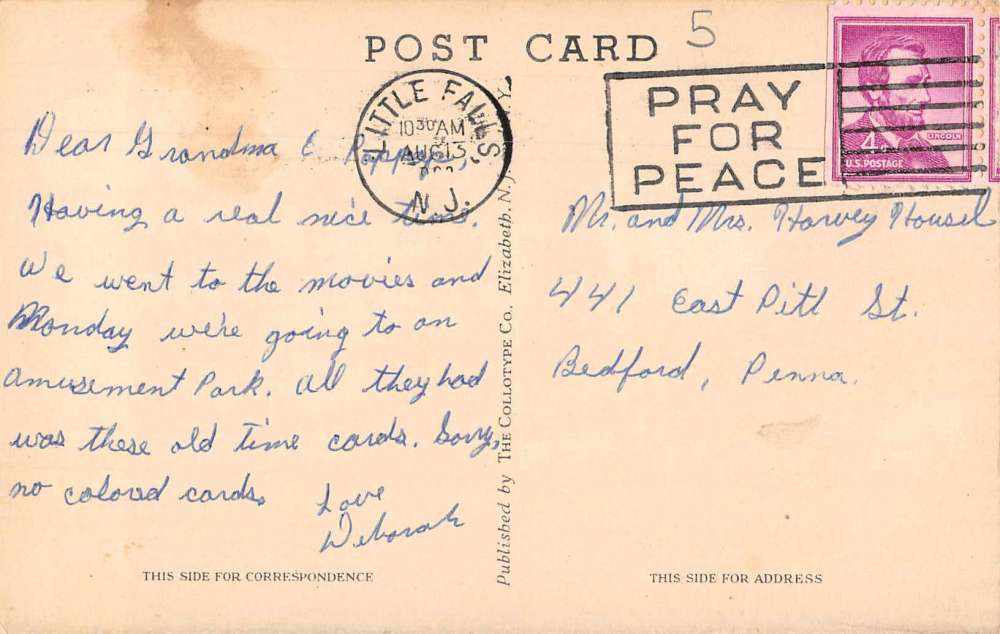 POST CARD
5
LITTLE FALLS
10 30 AM
AUG 13
N.J.
PRAY
FOR
PEACE
LINCOLN
4¢
U.S. POSTAGE
Dear Grandma & Pappap,
Having a real nice time.
We went to the movies and
Monday we're going to an
amusement Park. All they had
was these old time cards. Sorry,
no colored cards.
Love
Deborah
Mr. and Mrs. Harvey Housel
441 East Pitt St.
Bedford, Penna.
Published by THE COLLOTYPE CO., Elizabeth, N.J. N.Y.
THIS SIDE FOR CORRESPONDENCE
THIS SIDE FOR ADDRESS